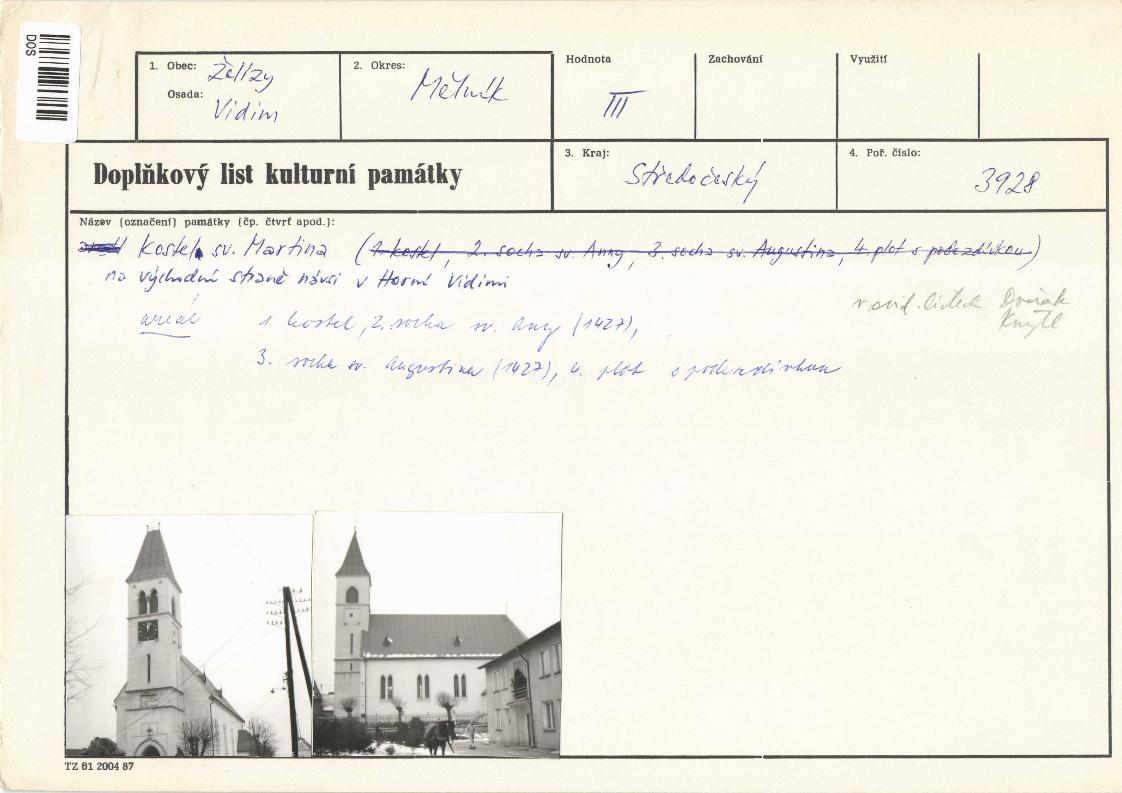 DOS
1. Obec: Želízy
Osada: Vidim
2. Okres: Mělník
Hodnota III
Zachování
Využití
Doplňkový list kulturní památky
3. Kraj: Středočeský
4. Poř. číslo: 3928
Název (označení) památky (čp. čtvrť apod.):
areál Kostel sv. Martina (1. kostel, 2. socha sv. Anny, 3. socha sv. Augustina, 4. plot s podezdívkou)
na východní straně návsi v Horní Vidimi
v evid. listech Dvořák
Knytl
areál 1. kostel, 2. socha sv. Anny (1427),
3. socha sv. Augustina (1427), 4. plot s podezdívkou
TZ 61 2004 87